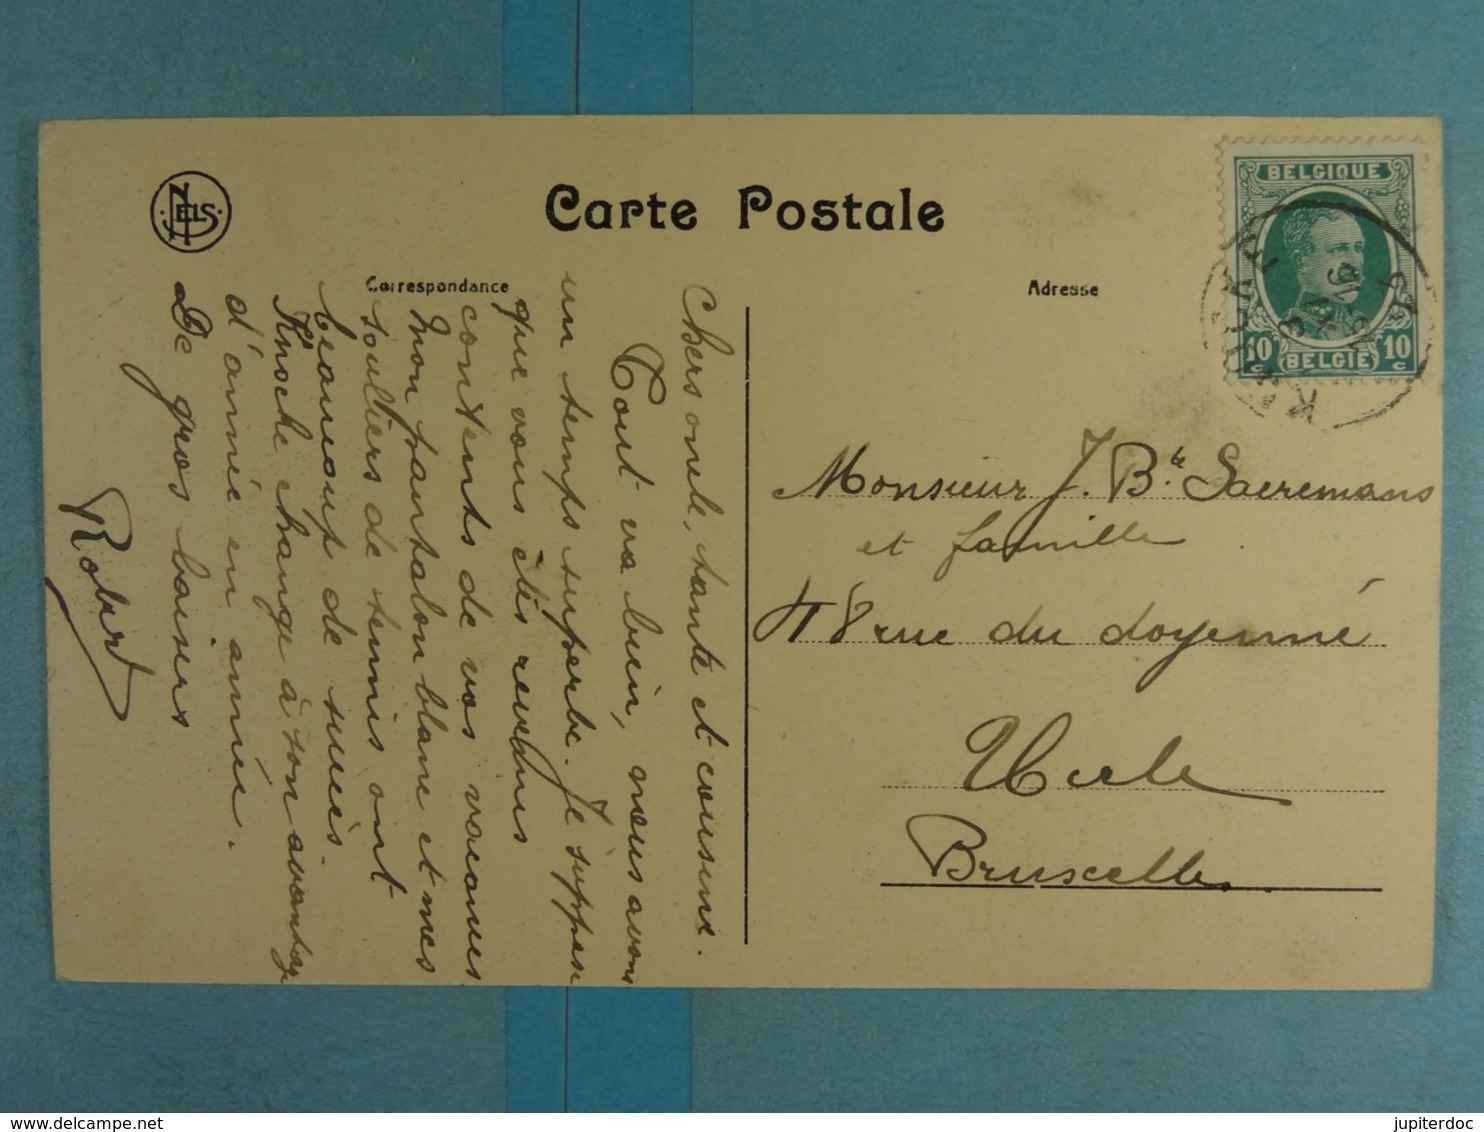 NELS
Carte Postale
Correspondance
Adresse
BELGIQUE
10 c
BELGIË
10 c
Chers oncle, tante et cousine.
Tout va bien, nous avons
un temps superbe. Je suppose
que vous êtes revenus
contents de vos vacances.
Mon pantalon blanc et mes
souliers de tennis ont
beaucoup de succès.
Knocke change à son avantage
d'année en année.
De gros baisers
Robert
Monsieur J. Bte Saeremans
et famille
48 rue du doyenné
Uccle
Bruxelles
delcampe.net
jupiterdoc